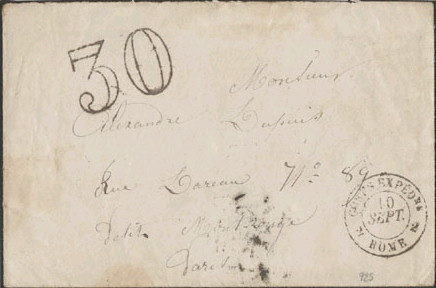 30
Monsieur
Alexandre Dupuis
Rue Lareau N° 89
Petit Montrouge
Paris
CORPS EXPEDre
10
SEPT.
ROME
925